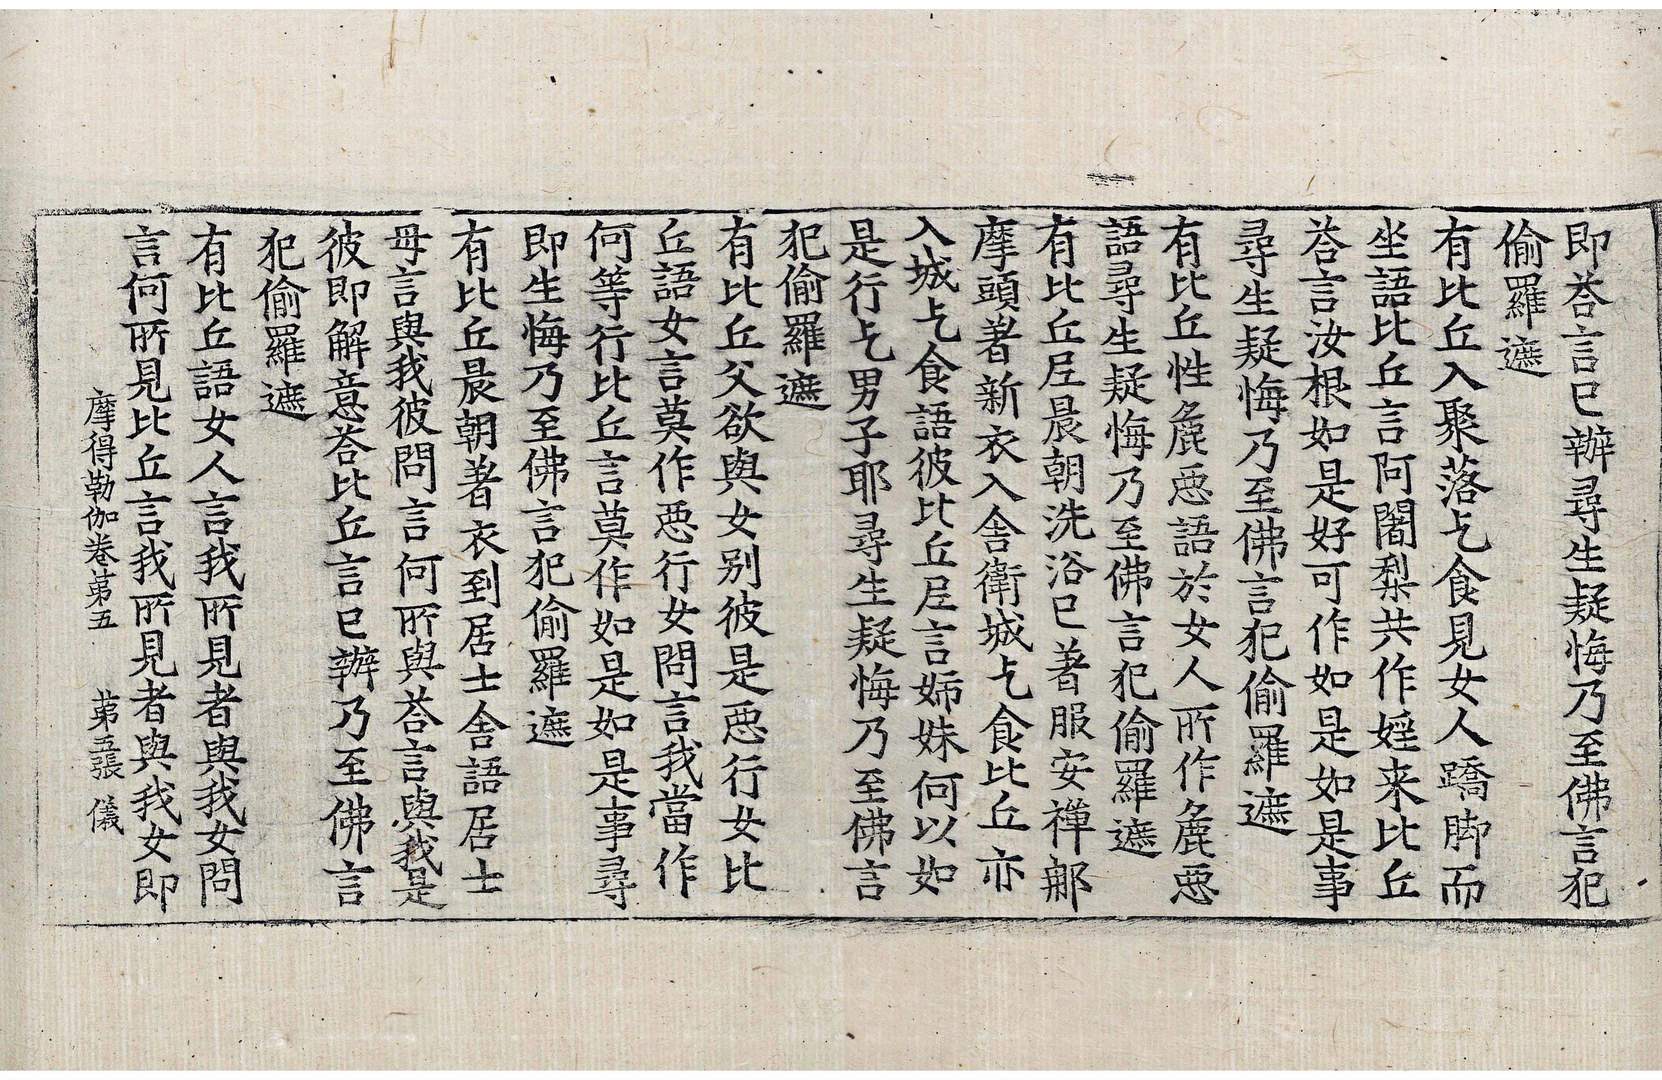 即荅言已辦尋生疑悔乃至佛言犯
偷羅遮
有比丘入聚落乞食見女人蹻脚而
坐語比丘言阿闍梨共作婬来比丘
荅言汝根如是好可作如是如是事
尋生疑悔乃至佛言犯偷羅遮
有比丘性麁惡語於女人所作麁惡
語尋生疑悔乃至佛言犯偷羅遮
有比丘尼晨朝洗浴已著服安禪那
摩頭著新衣入舍衛城乞食比丘亦
入城乞食語彼比丘尼言姉妹何以如
是行乞男子耶尋生疑悔乃至佛言
犯偷羅遮
有比丘父欲與女别彼是惡行女比
丘語女言莫作惡行女問言我當作
何等行比丘言莫作如是如是事尋
即生悔乃至佛言犯偷羅遮
有比丘晨朝著衣到居士舍語居士
母言與我彼問言何所與荅言與我是
彼即解意荅比丘言已辦乃至佛言
犯偷羅遮
有比丘語女人言我所見者與我女問
言何所見比丘言我所見者與我女即
摩得勒伽卷第五 第五張 儀